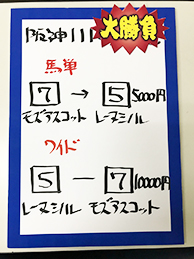 阪神11R
大勝負
馬単
7 → 5 5000円
モズアスコット レーヌミノル
ワイド
5 ー 7 10000円
レーヌミノル モズアスコット